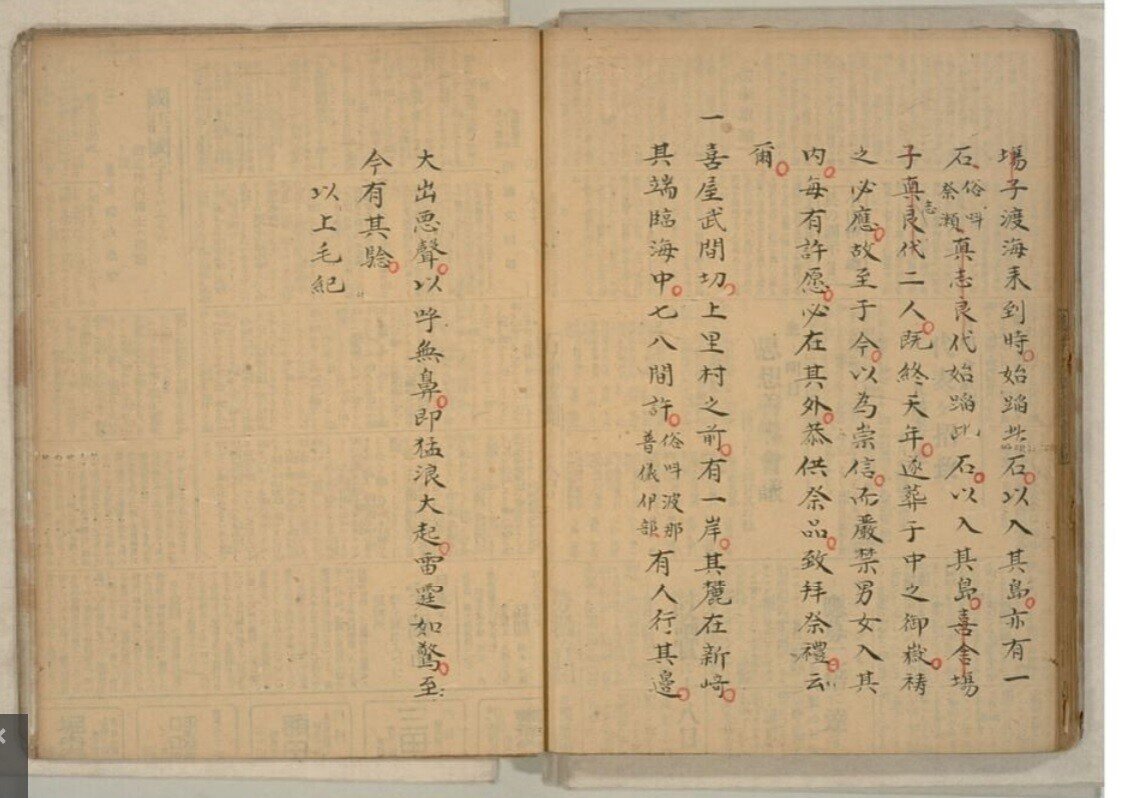 塲子渡海来到時。始蹈此石。以入其島。亦有一
石俗呌祭瀬真志良代始蹈此石。以入其島。喜舎塲
子真志良代二人。既終天年。遂葬于中之御嶽。禱
之必應。故至于今。以為崇信。而嚴禁男女入其
内。毎有許愿。必在其外。恭供祭品。致拜祭禮。云
爾。
一喜屋武間切。上里村之前。有一岸。其麓在新﨑。
其端臨海中。七八間許。俗呌波那普儀伊部有人行其邉。
大出悪聲。以呼無鼻。即猛浪大起。雷霆如驚。至
今有其驗。
以上毛紀